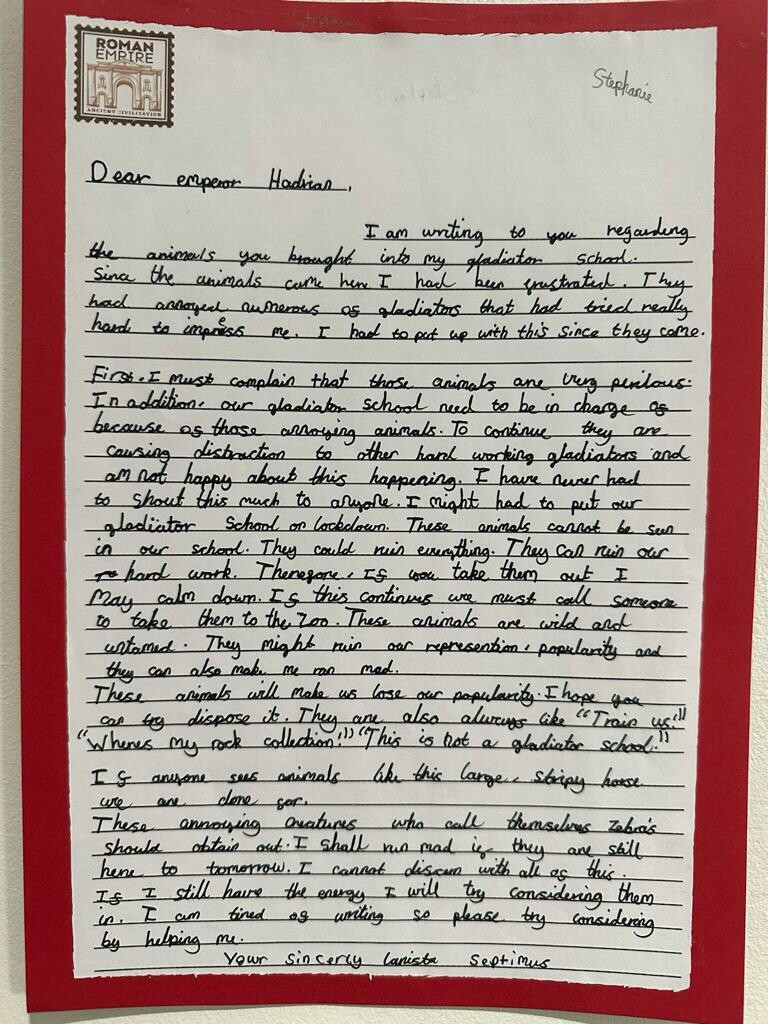 ROMAN
EMPIRE
ANCIENT CIVILIZATION
Stephanie
Dear emperor Hadrian,
I am writing to you regarding
the animals you brought into my gladiator school.
Since the animals came here I had been frustrated. They
had annoyed numerous of gladiators that had tried really
hard to impress me. I had to put up with this since they came.
First, I must complain that those animals are very perilous.
In addition, our gladiator school need to be in charge of
because of those annoying animals. To continue they are
causing distraction to other hard working gladiators and
am not happy about this happening. I have never had
to shout this much to anyone. I might had to put our
gladiator School on lockdown. These animals cannot be seen
in our school. They could ruin everything. They can ruin our
hard work. Therefore, If you take them out I
May calm down. If this continues we must call someone
to take them to the Zoo. These animals are wild and
untamed. They might ruin our represention, popularity and
they can also make me ran mad.
These animals will make us lose our popularity. I hope you
can try dispose it. They are also always like "Train us!"
"Wheres my rock collection!" "This is not a gladiator school."
If anyone sees animals like this large, stripy horse
we are done for.
These annoying creatures who call themselves Zebra's
should obtain out. I shall run mad if they are still
here to tomorrow. I cannot discern with all of this.
If I still have the energy I will try considering them
in. I am tired of writing so please try considering
by helping me.
Your sincerly Lanista Septimus